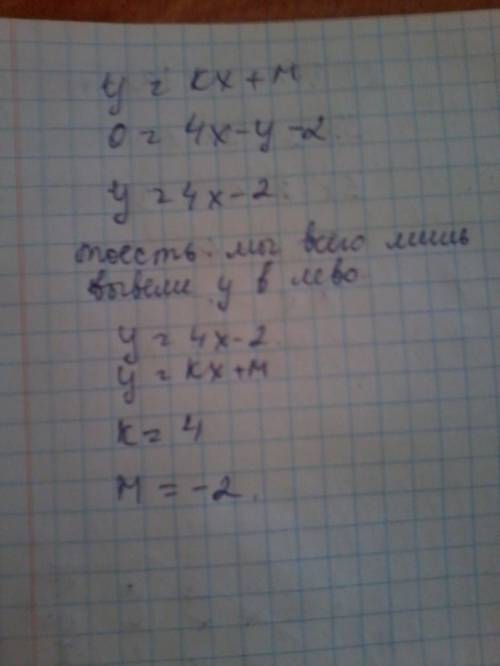 y = kx + м
0 = 4x - y - 2.
y = 4x - 2.
тоесть мы всего лишь
вывели y в лево
y = 4x - 2
y = kx + м
k = 4
м = -2.